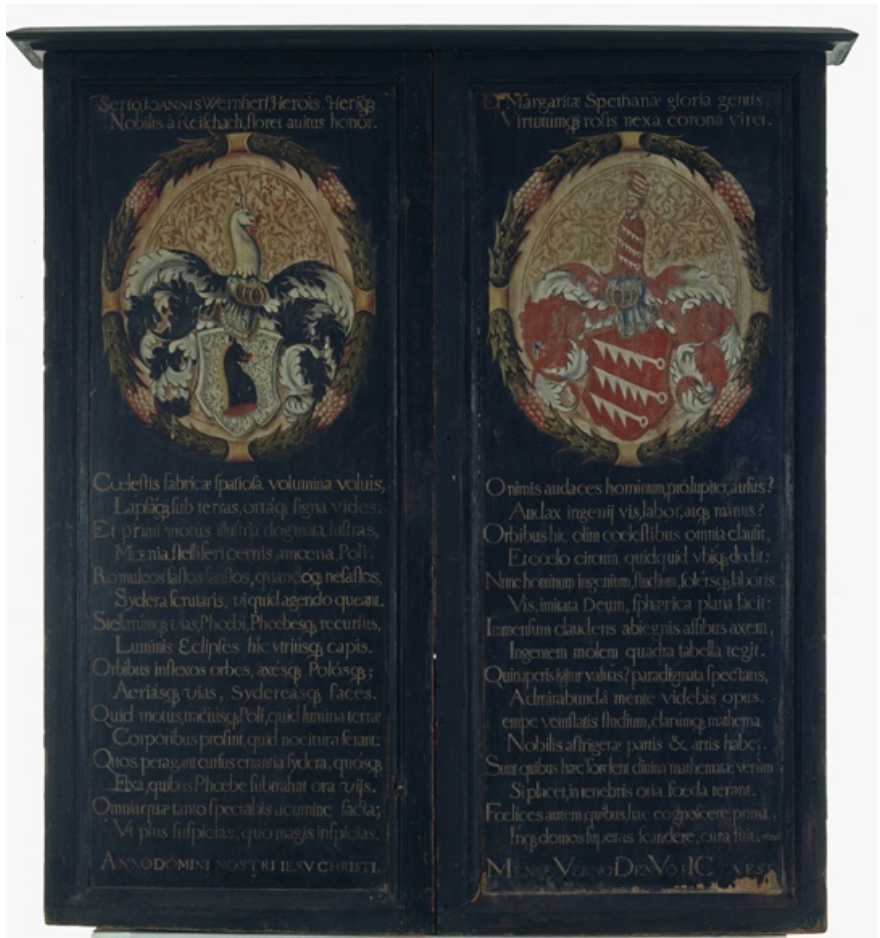 Serto IOANNIS Wernheri, Herois, Heriq₃
Nobilis à Reischach, floret auitus honor.
Cœlestis fabricæ spatiosa volumina voluis,
Lapsáq₃ sub terras, ortáq₃ signa vides:
Et primi motus illustria dogmata lustras,
Mœnia stelliferi cernis, amœna Poli.
Romuleos fastos faustos, quandoq₃ nefastos,
Sydera scrutaris, vi quid agendo queant.
Stellarumq₃ vias, Phœbi, Phoebesq₃ recursus,
Luminis Eclipses hic vtriusq₃ capis.
Orbibus inflexos orbes, axésq₃ Polósq₃;
Aeriásq₃ vias, Sydereásq₃ faces.
Quid motus, radiusq₃ Poli, quid lumina terræ
Corporibus prosint, quid nocitura ferant:
Quos peragant cursus errantia sydera, quósq₃
Fixa, quibus Phoebe subtrahat ora vijs.
Omnia quæ tanto spectabis acumine facta;
Vt plus suspicias, quo magis inspicias.
ANNO DOMINI NOSTRI IESV CHRISTI.
Et Margaritæ Spethanæ gloria gentis,
Virtutumq₃ rosis nexa corona viret.
O nimis audaces hominum, pro Iupiter, ausus?
Audax ingenij vis, labor, atq₃ manus?
Orbibus hic olim coelestibus omnia clausit,
Et coelo circum quidquid vbiq₃ dedit:
Nunc hominum ingenium, studium, solersq₃ laboris
Vis, imitata Deum, sphærica plana facit:
Immensum claudens abiegnis assibus axem,
Ingentem molem quadra tabella tegit.
Quin aperis igitur valuas? paradigmata spectans,
Admirabunda mente videbis opus.
empe venustatis studium, clarumq₃ mathema
Nobilis astrigeræ partis & artis habet.
Sunt quibus hæc sordent diuina mathemata: verùm
Si placet, in tenebris otia foeda terant.
Foelices autem quibus hæc cognoscere prima,
Inq₃ domos superas scandere, cura fuit.
MENSE VERNO